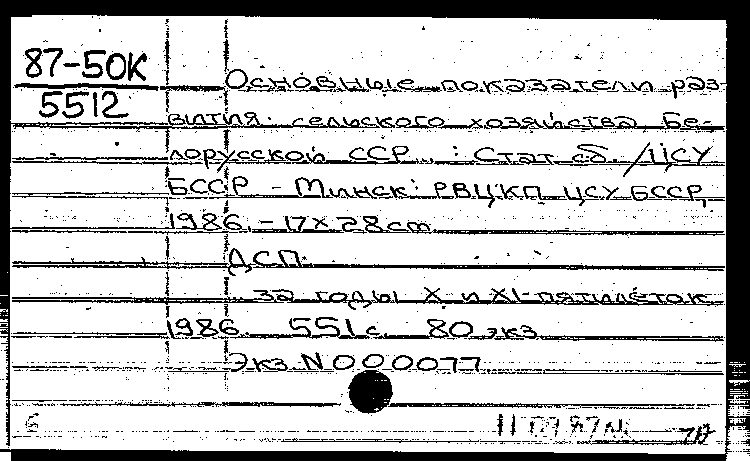 87-50К
5512
Основные показатели раз-
вития сельского хозяйства Бе-
лорусской ССР... : Стат. сб. / ЦСУ
БССР. - Минск: РВЦ КП ЦСУ БССР,
1986. - 17×28 cm.
ДСП.
... за годы X и XI пятилеток.
1986. 551 с. 80 экз.
Экз. N 000077
6